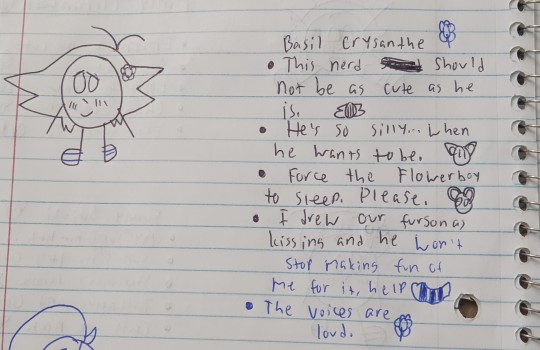 Basil Crysanthe
• This nerd should
not be as cute as he
is.
• He's so silly... when
he wants to be.
• Force the Flowerboy
to sleep. Please.
• I drew our fursonas
kissing and he won't
stop making fun of
me for it, help
• The voices are
loud.